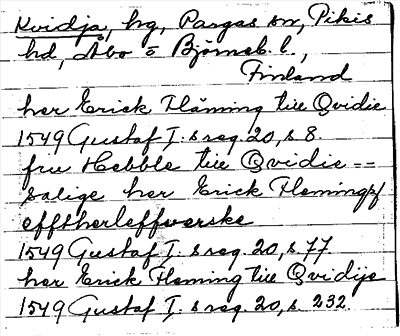 Kvidja, hg, Pargas sn, Pikis
hd, Åbo o Björneb. l.,
Finland
her Erick Fläming till Qvidie
1549 Gustaf I:s reg. 20, s 8.
fru Hebble till Qvidie --
salige her Erick Flemings
efftherleffwerske
1549 Gustaf I:s reg. 20, s. 77.
her Erick Fleming till Qvidije
1549 Gustaf I:s reg. 20, s. 232.